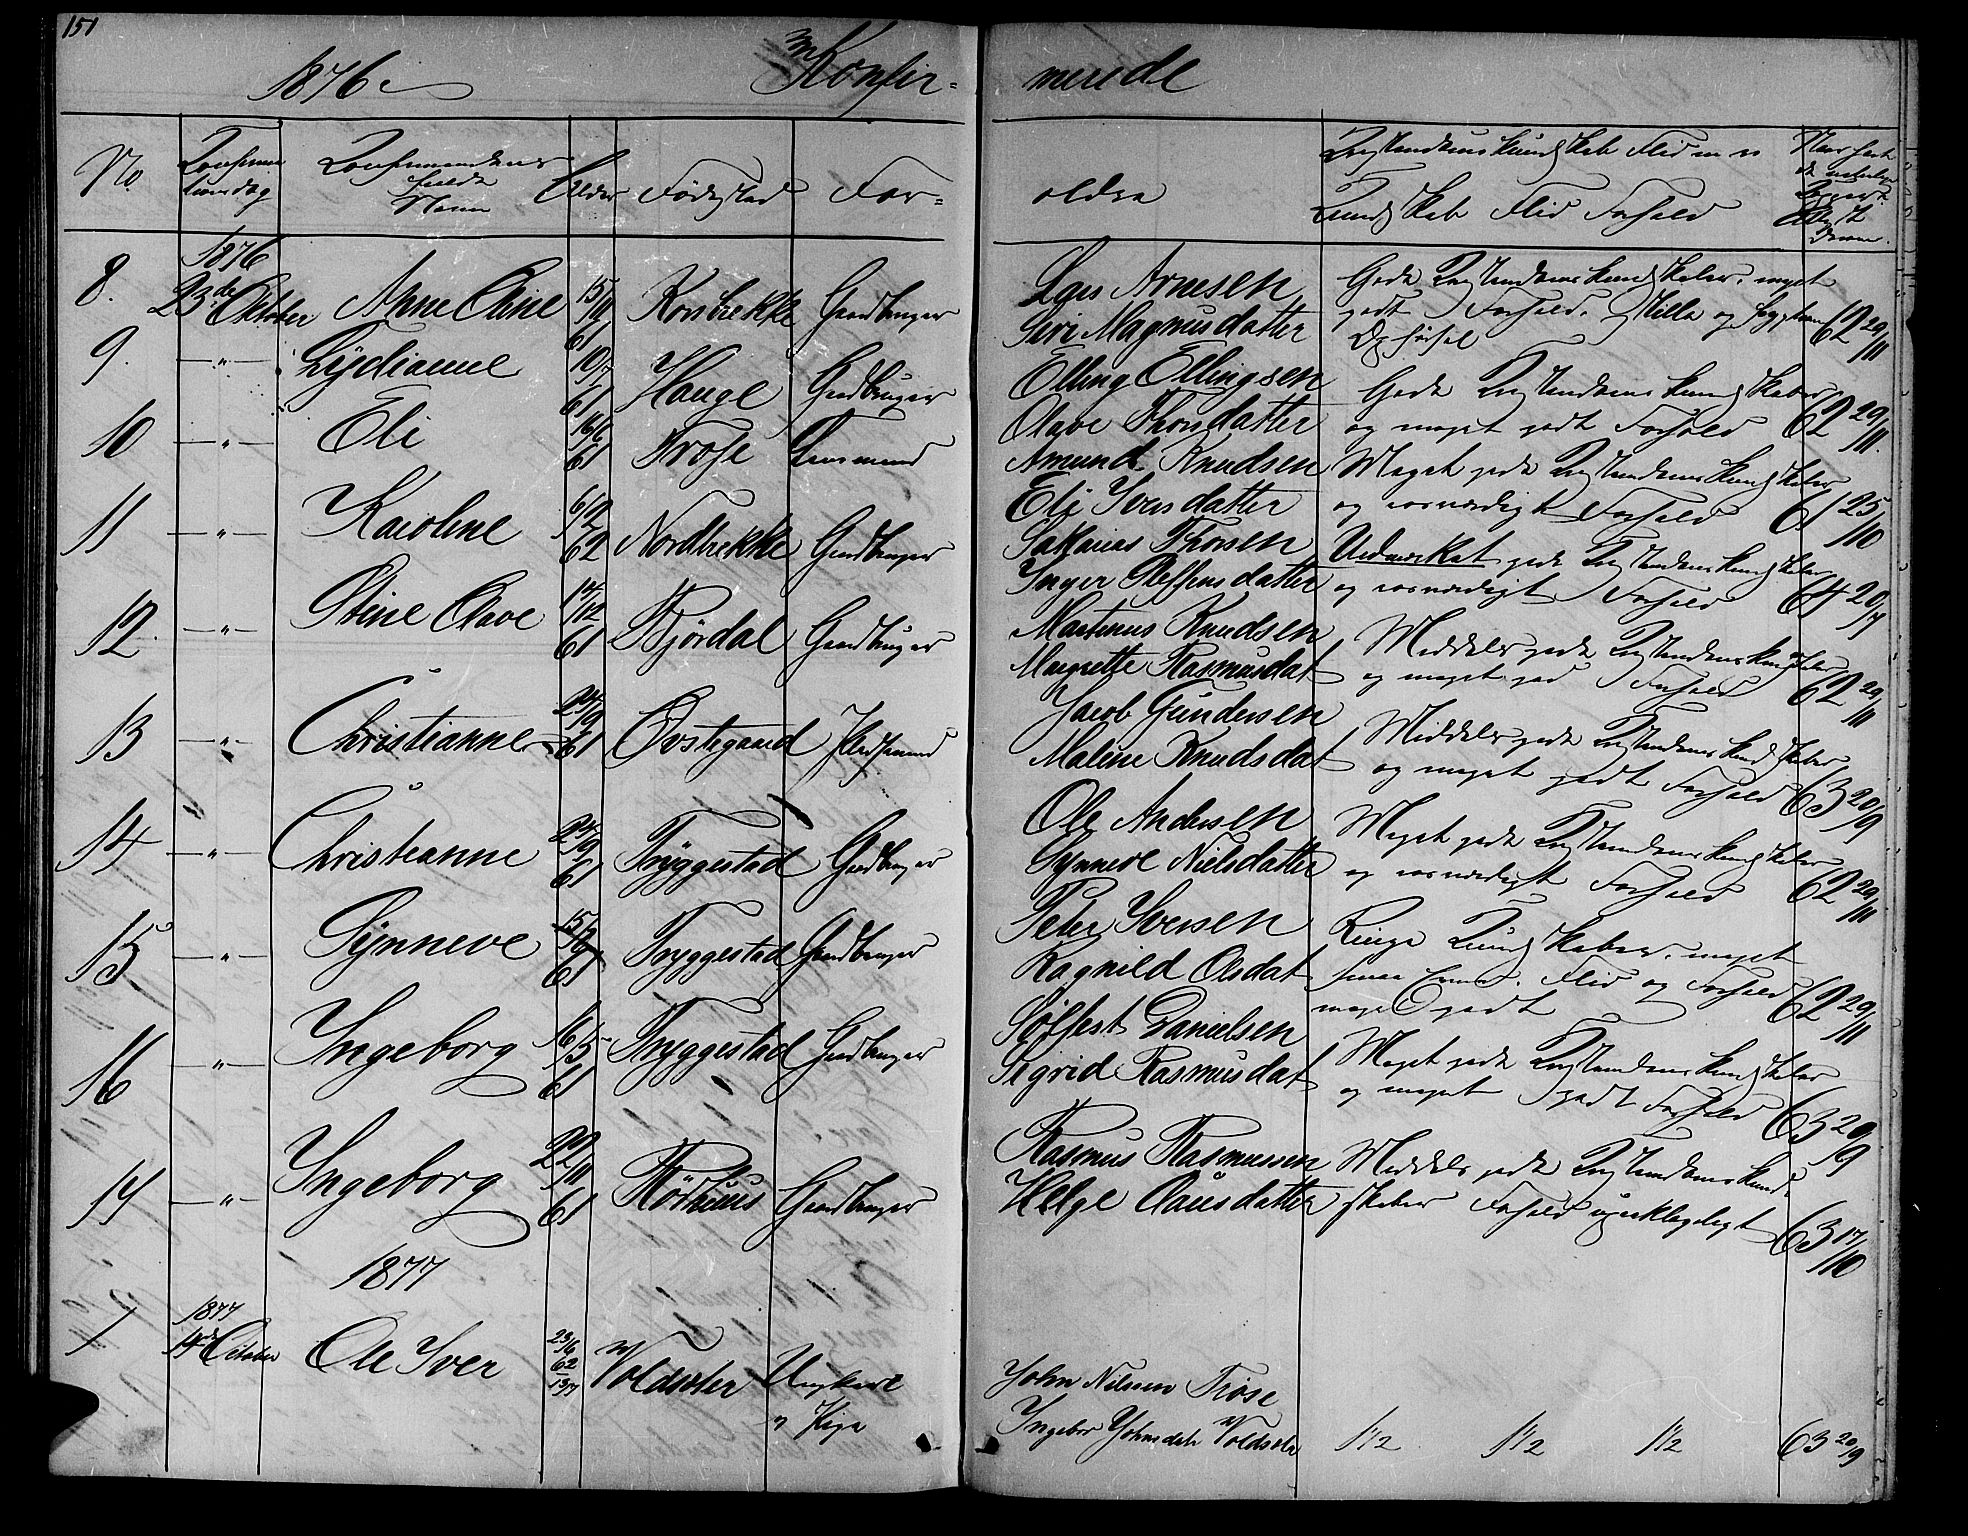 151
1876 Konfir- merede
No. Konfirma tionsdag Konfirmandens fulde Navn Alder Fødested For= ældre Kristendomskundskab Flid
Kundskab Flid Forhold
8. 1876 23de Oktober Anne Oline 15/11 61 Korsbrekke Gaardbruger
Lars Arnesen
Siri Magnusdatter
Gode Kristendomskundskaber, meget
godt Forhold. Stille og
Opførsel 62 29/11
9. —"— Lydianne 10/7 61 Hauge Gardbruger
Elling Ellingsen
Olave Thorsdatter
Gode Kristendomskundskaber
og meget godt Forhold 62 29/11.
10 —"— Eli 16/6 61 Trøse Lensmand
Amund Knudsen
Eli Iversdatter
Meget gode Kristendomskundskaber
og rosværdigt Forhold 61 25/10
11 —"— Karoline 6/2 62 Nordbrekke Gardbruger
Sakarias Thorsen
Inger Steffensdatter
Udmærket gode Kristendomskundskaber
og rosværdigt Forhold 64 20/7
12. —"— Stine Olave 14/12 61 Bjørdal Gaardbruger
Martinus Knudsen
Magrette Rasmusdat
Middels gode Kristendomskundskaber
og meget god Forhold 62 29/11
13 —"— Christianne 24/9 61 Øvstegaard Pladsmand
Jacob Gundersen
Maline Knudsdat
Middels gode Kristendomskundskaber
og meget godt Forhold 63 20/9
14 —"— Christianne 24/9 61 Tryggestad Gaardbruger
Ole Andersen
Synneve Nielsdatter
Meget gode Kristendomskundskaber
og rosværdigt Forhold 62 29/11
15 —"— Synneve 15/9 61 Tryggestad Gaardbruger
Peter Iversen
Ragnild Olsdat
Ringe Kundskaber, meget
smaa Evner. Flid og Forhold
meget godt 62 29/11
16 —"— Ingeborg 16/5 61 Tryggestad Gardbruger
Sølfest Danielsen
Sigrid Rasmusdat
Meget gode Kristendomskundskaber
og meget godt Forhold 63 20/9
17 —"— Ingeborg 22/11 61 Rørhuus Gaardbruger
Rasmus Rasmussen
Helge Clausdatter
Middels gode Kristendomskund-
skaber Forhold upaaklageligt 63 17/10
1877
1 1877 14de October Ole Iver 23/6 62 Voldsæter Ungkarl
og Pige
John Nilssen Trøse
Ingebor Johnsdat. Voldsæter 1½ 1½ 1½ 63 20/9